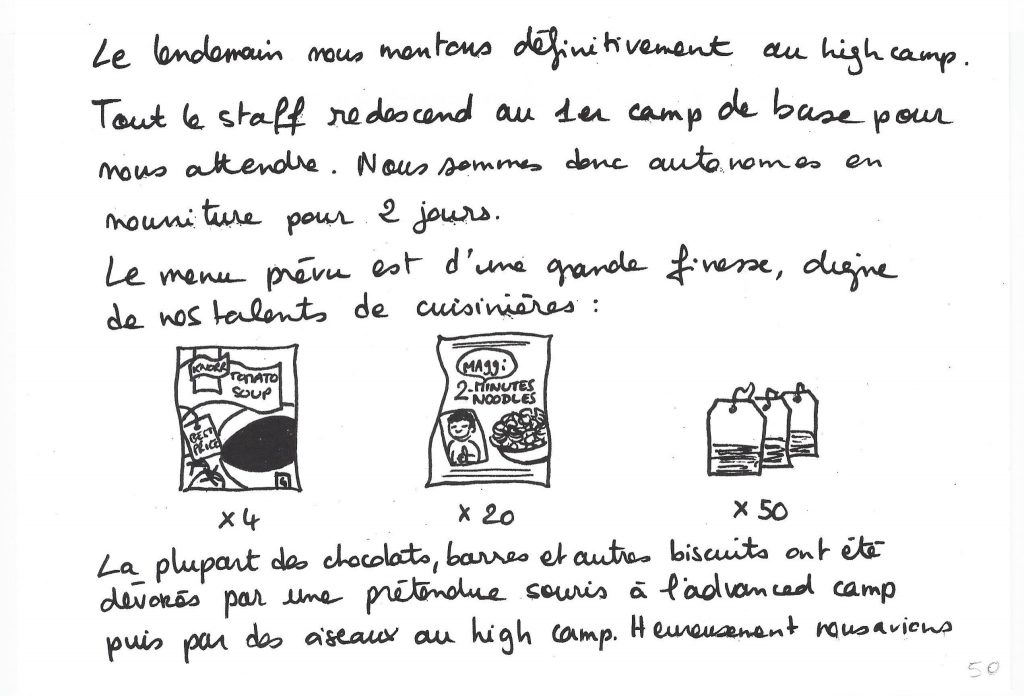 Le lendemain nous montons définitivement au high camp.
Tout le staff redescend au 1er camp de base pour
nous attendre. Nous sommes donc autonomes en
nourriture pour 2 jours.
Le menu prévu est d'une grande finesse, digne
de nos talents de cuisinières :
KNORR
TOMATO
SOUP
BEST
PRICE
4
MAGGi
2-MINUTES
NOODLES
x 4
x 20
x 50
La plupart des chocolats, barres et autres biscuits ont été
dévorés par une prétendue souris à l'advanced camp
puis par des oiseaux au high camp. Heureusement nous avions
50